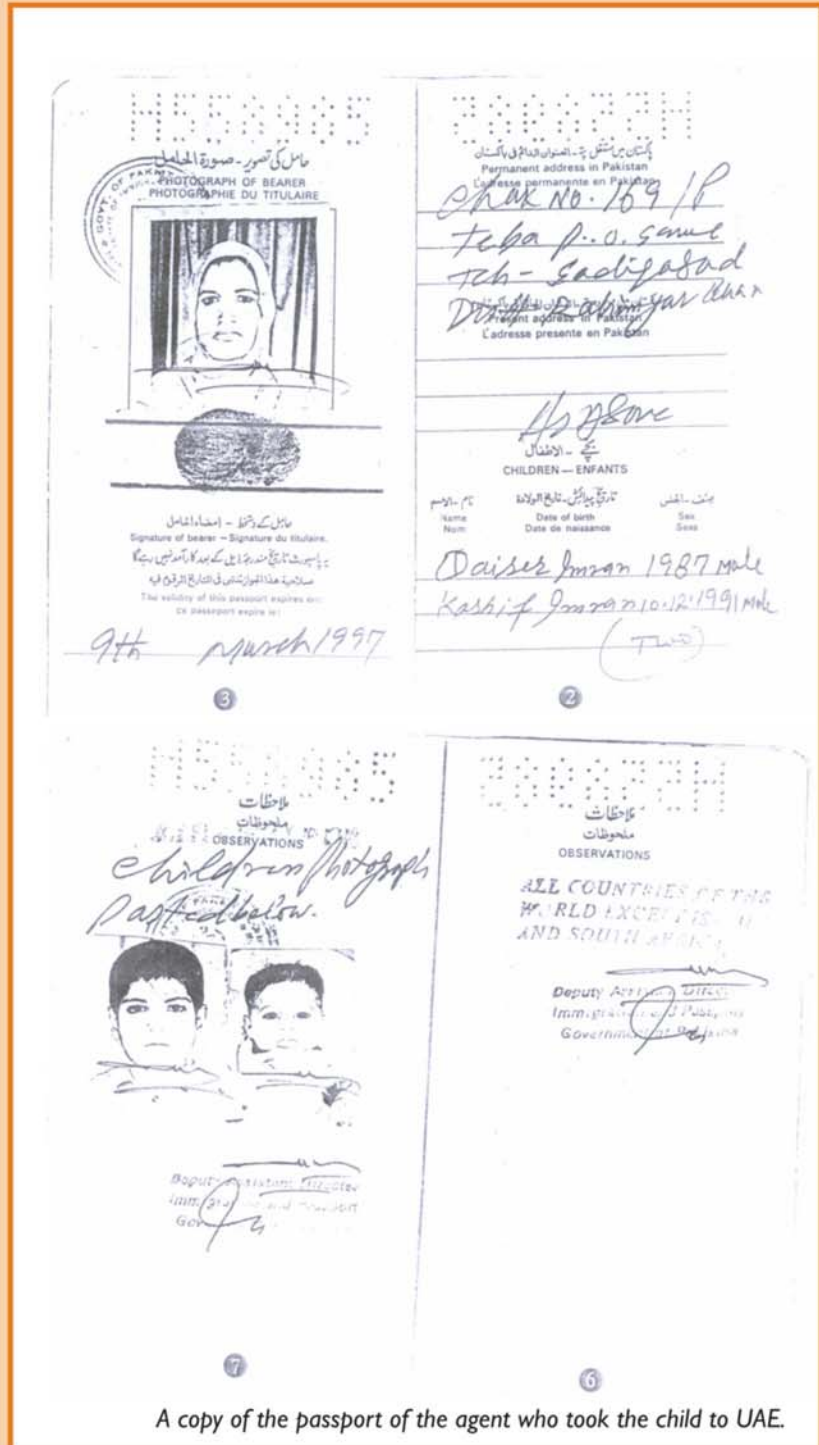 حامل کی تصویر - صورة الحامل
PHOTOGRAPH OF BEARER
PHOTOGRAPHIE DU TITULAIRE
GOVT. OF
حامل کے دستخط - إمضاء الحامل
Signature of bearer – Signature du titulaire.
The validity of this passport expires on:
ce passeport expire le:
9th March 1997
3
Permanent address in Pakistan
L'adresse permanente en Pakistan
Chak No. 169/P
P.O.
Teh -
Distt Rahimyar Khan
Present address in Pakistan
L'adresse presente en Pakistan
As Above
بچے - الاطفال
CHILDREN — ENFANTS
نام - الاسم
تاریخ پیدائش - تاريخ الولادة
جنس - الجنس
Name Date of birth Sex
Nom Date de naissance Sexe
Qaiser Imran 1987 Male
Kashif Imran 10.12.1991 Male
(Two)
2
ملاحظات
ملحوظات
OBSERVATIONS
Children Photograph
Pasted below.
Deputy Assistant Director
7
ملاحظات
ملحوظات
OBSERVATIONS
ALL COUNTRIES OF THE
WORLD EXCEPT
AND SOUTH AFRICA
Deputy Assistant Director
Immigration and Passports
Government of Pakistan
6
A copy of the passport of the agent who took the child to UAE.